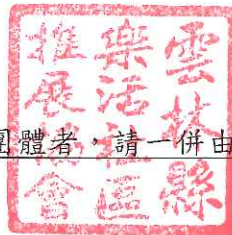 雲林縣
樂活社區
推展協會
團體者，請一併由